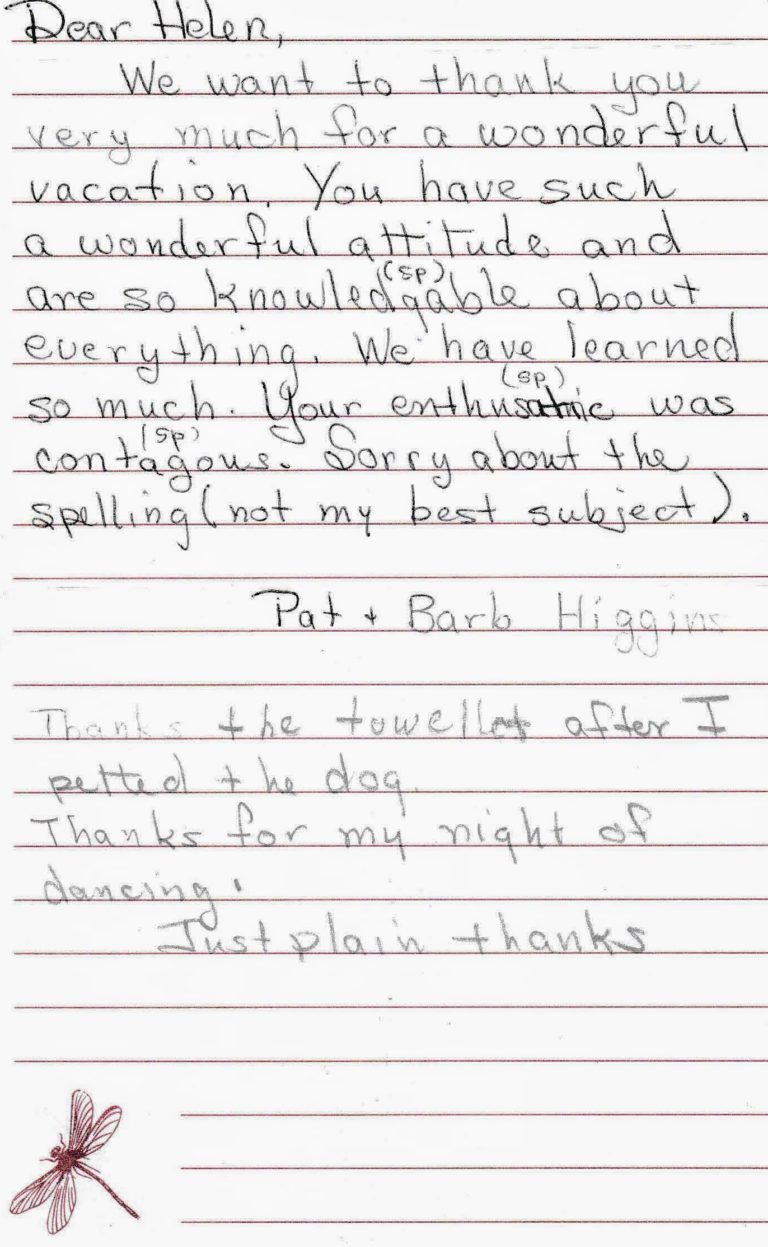 Dear Helen,
We want to thank you
very much for a wonderful
vacation. You have such
a wonderful attitude and
(sp)
are so knowledgable about
everything. We have learned
(sp)
so much. Your enthusatnic was
(sp)
contagous. Sorry about the
spelling (not my best subject).
Pat + Barb Higgins
Thanks the towellet after I
petted the dog.
Thanks for my night of
dancing.
Just plain thanks